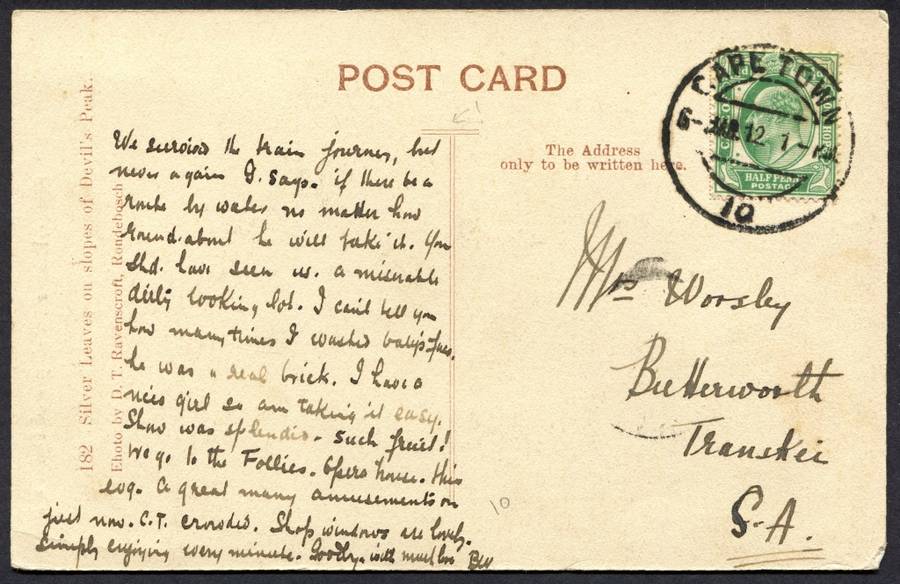 POST CARD
The Address
only to be written here.
182 Silver Leaves on slopes of Devil's Peak.
Photo by D. T. Ravenscroft, Rondebosch
CAPE TOWN
MAR 12 1-
10
HALFPENNY
POSTAGE
We survived the train journey, but
never again G. says. if there be a
route by water no matter how
round-about he will take it. You
shd. have seen us. a miserable
dirty looking lot. I can't tell you
how many times I washed baby's face.
he was a real brick. I have a
nice girl so am taking it easy.
Show was splendid. Such fruit!
We go to the Follies. Opera house. this
evg. A great many amusements on
just now. C.T. crowded. Shop windows are lovely.
Simply enjoying every minute. Goodbye with much love
Mrs Worsley
Butterworth
Transkei
S.A.
10